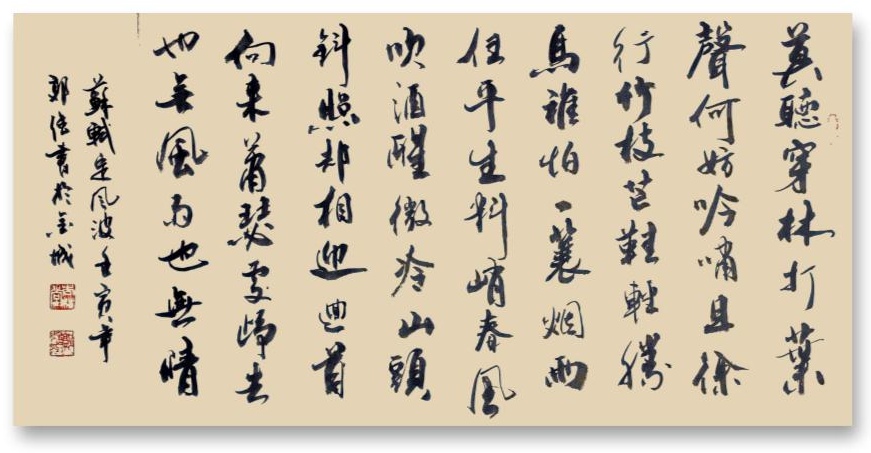 莫聽穿林打葉
聲何妨吟嘯且徐
行竹杖芒鞋輕勝
馬誰怕一蓑烟雨
任平生料峭春風
吹酒醒微冷山頭
斜照却相迎回首
向来蕭瑟處歸去
也无風雨也無晴
蘇軾定風波壬寅年
郭偉書於金城